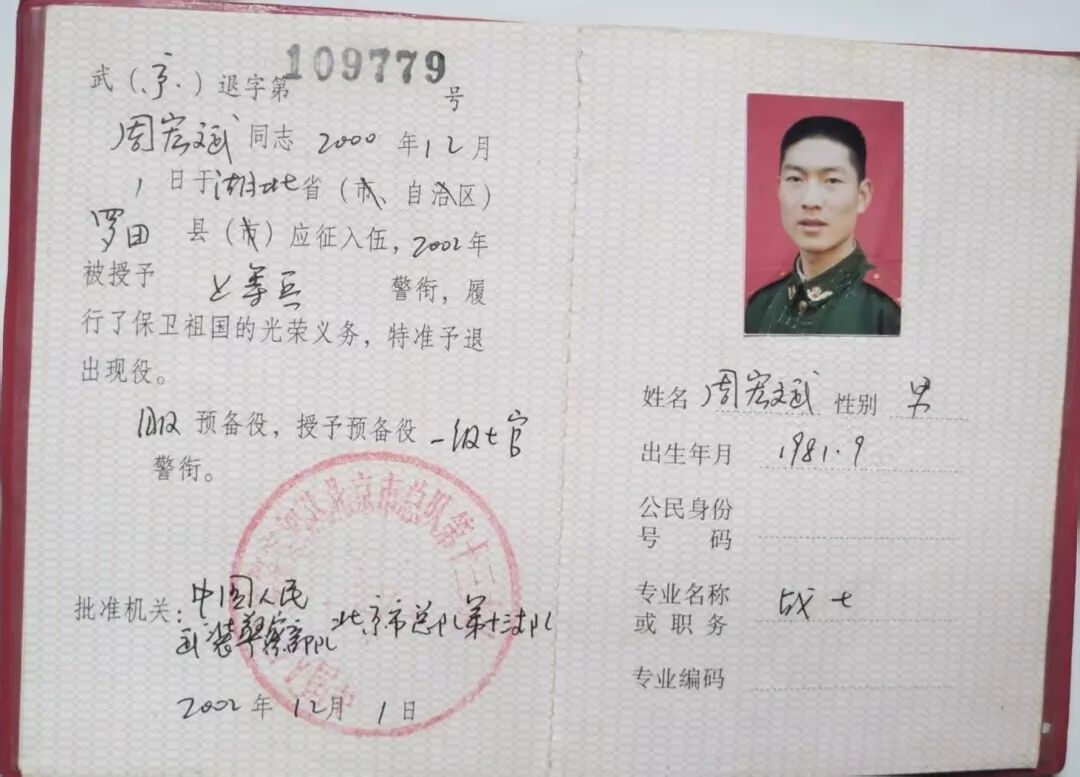 武（京）退字第109779号
周宏斌同志 2000年12月
1日于湖北省（市、自治区）
罗田县（市）应征入伍，2002年
被授予 上等兵 警衔，履
行了保卫祖国的光荣义务，特准予退
出现役。
服预备役，授予预备役一级士官
警衔。
批准机关：中国人民
武装警察部队北京市总队第十三支队
2002年12月1日
北京市总队第十三
姓名 周宏斌 性别 男
出生年月 1981.9
公民身份
号码
专业名称 战士
或职务
专业编码